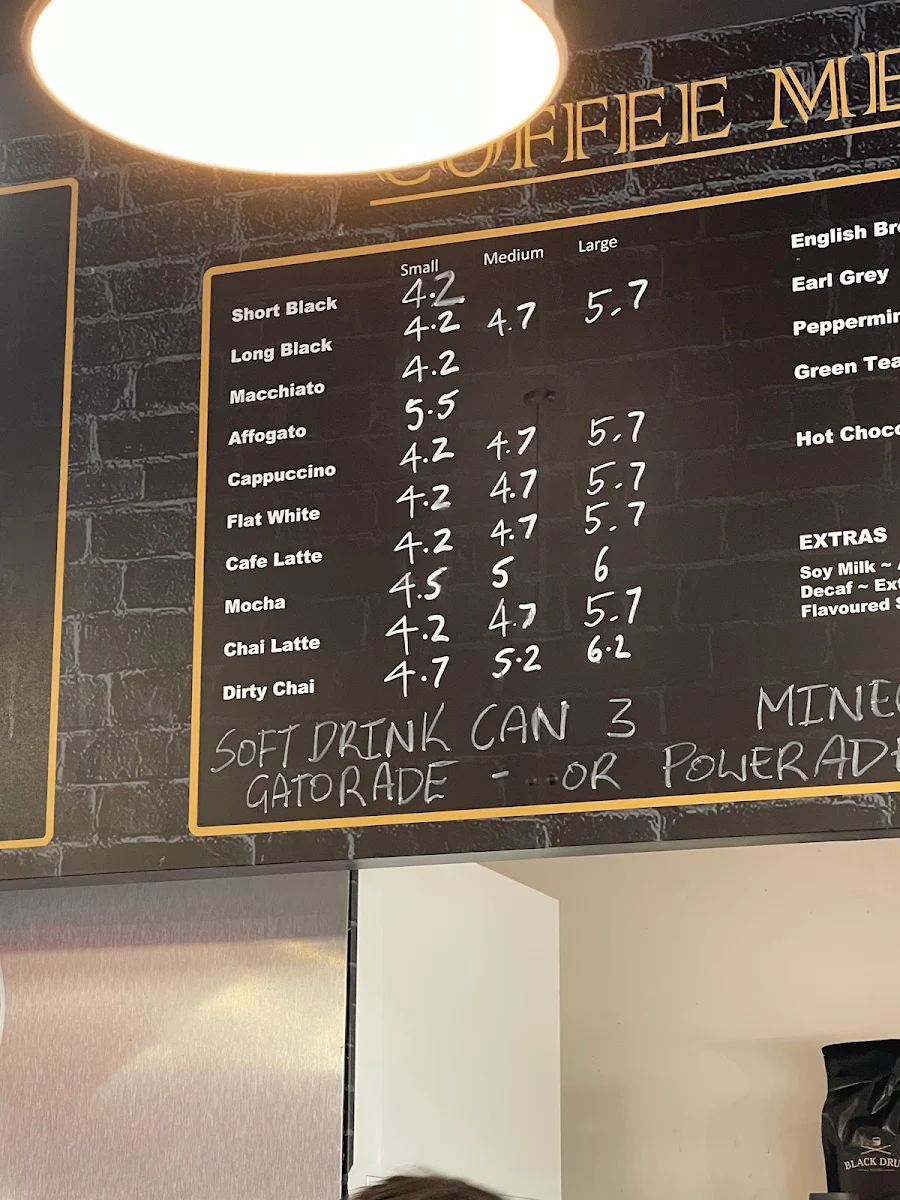 COFFEE
Small Medium Large
Short Black 4.2
Long Black 4.2 4.7 5.7
Macchiato 4.2
Affogato 5.5
Cappuccino 4.2 4.7 5.7
Flat White 4.2 4.7 5.7
Cafe Latte 4.2 4.7 5.7
Mocha 4.5 5 6
Chai Latte 4.2 4.7 5.7
Dirty Chai 4.7 5.2 6.2
SOFT DRINK CAN 3
GATORADE - OR POWERADE
English
Earl Grey
Green Tea
Hot
EXTRAS
Soy Milk ~
Decaf ~
Flavoured
BLACK